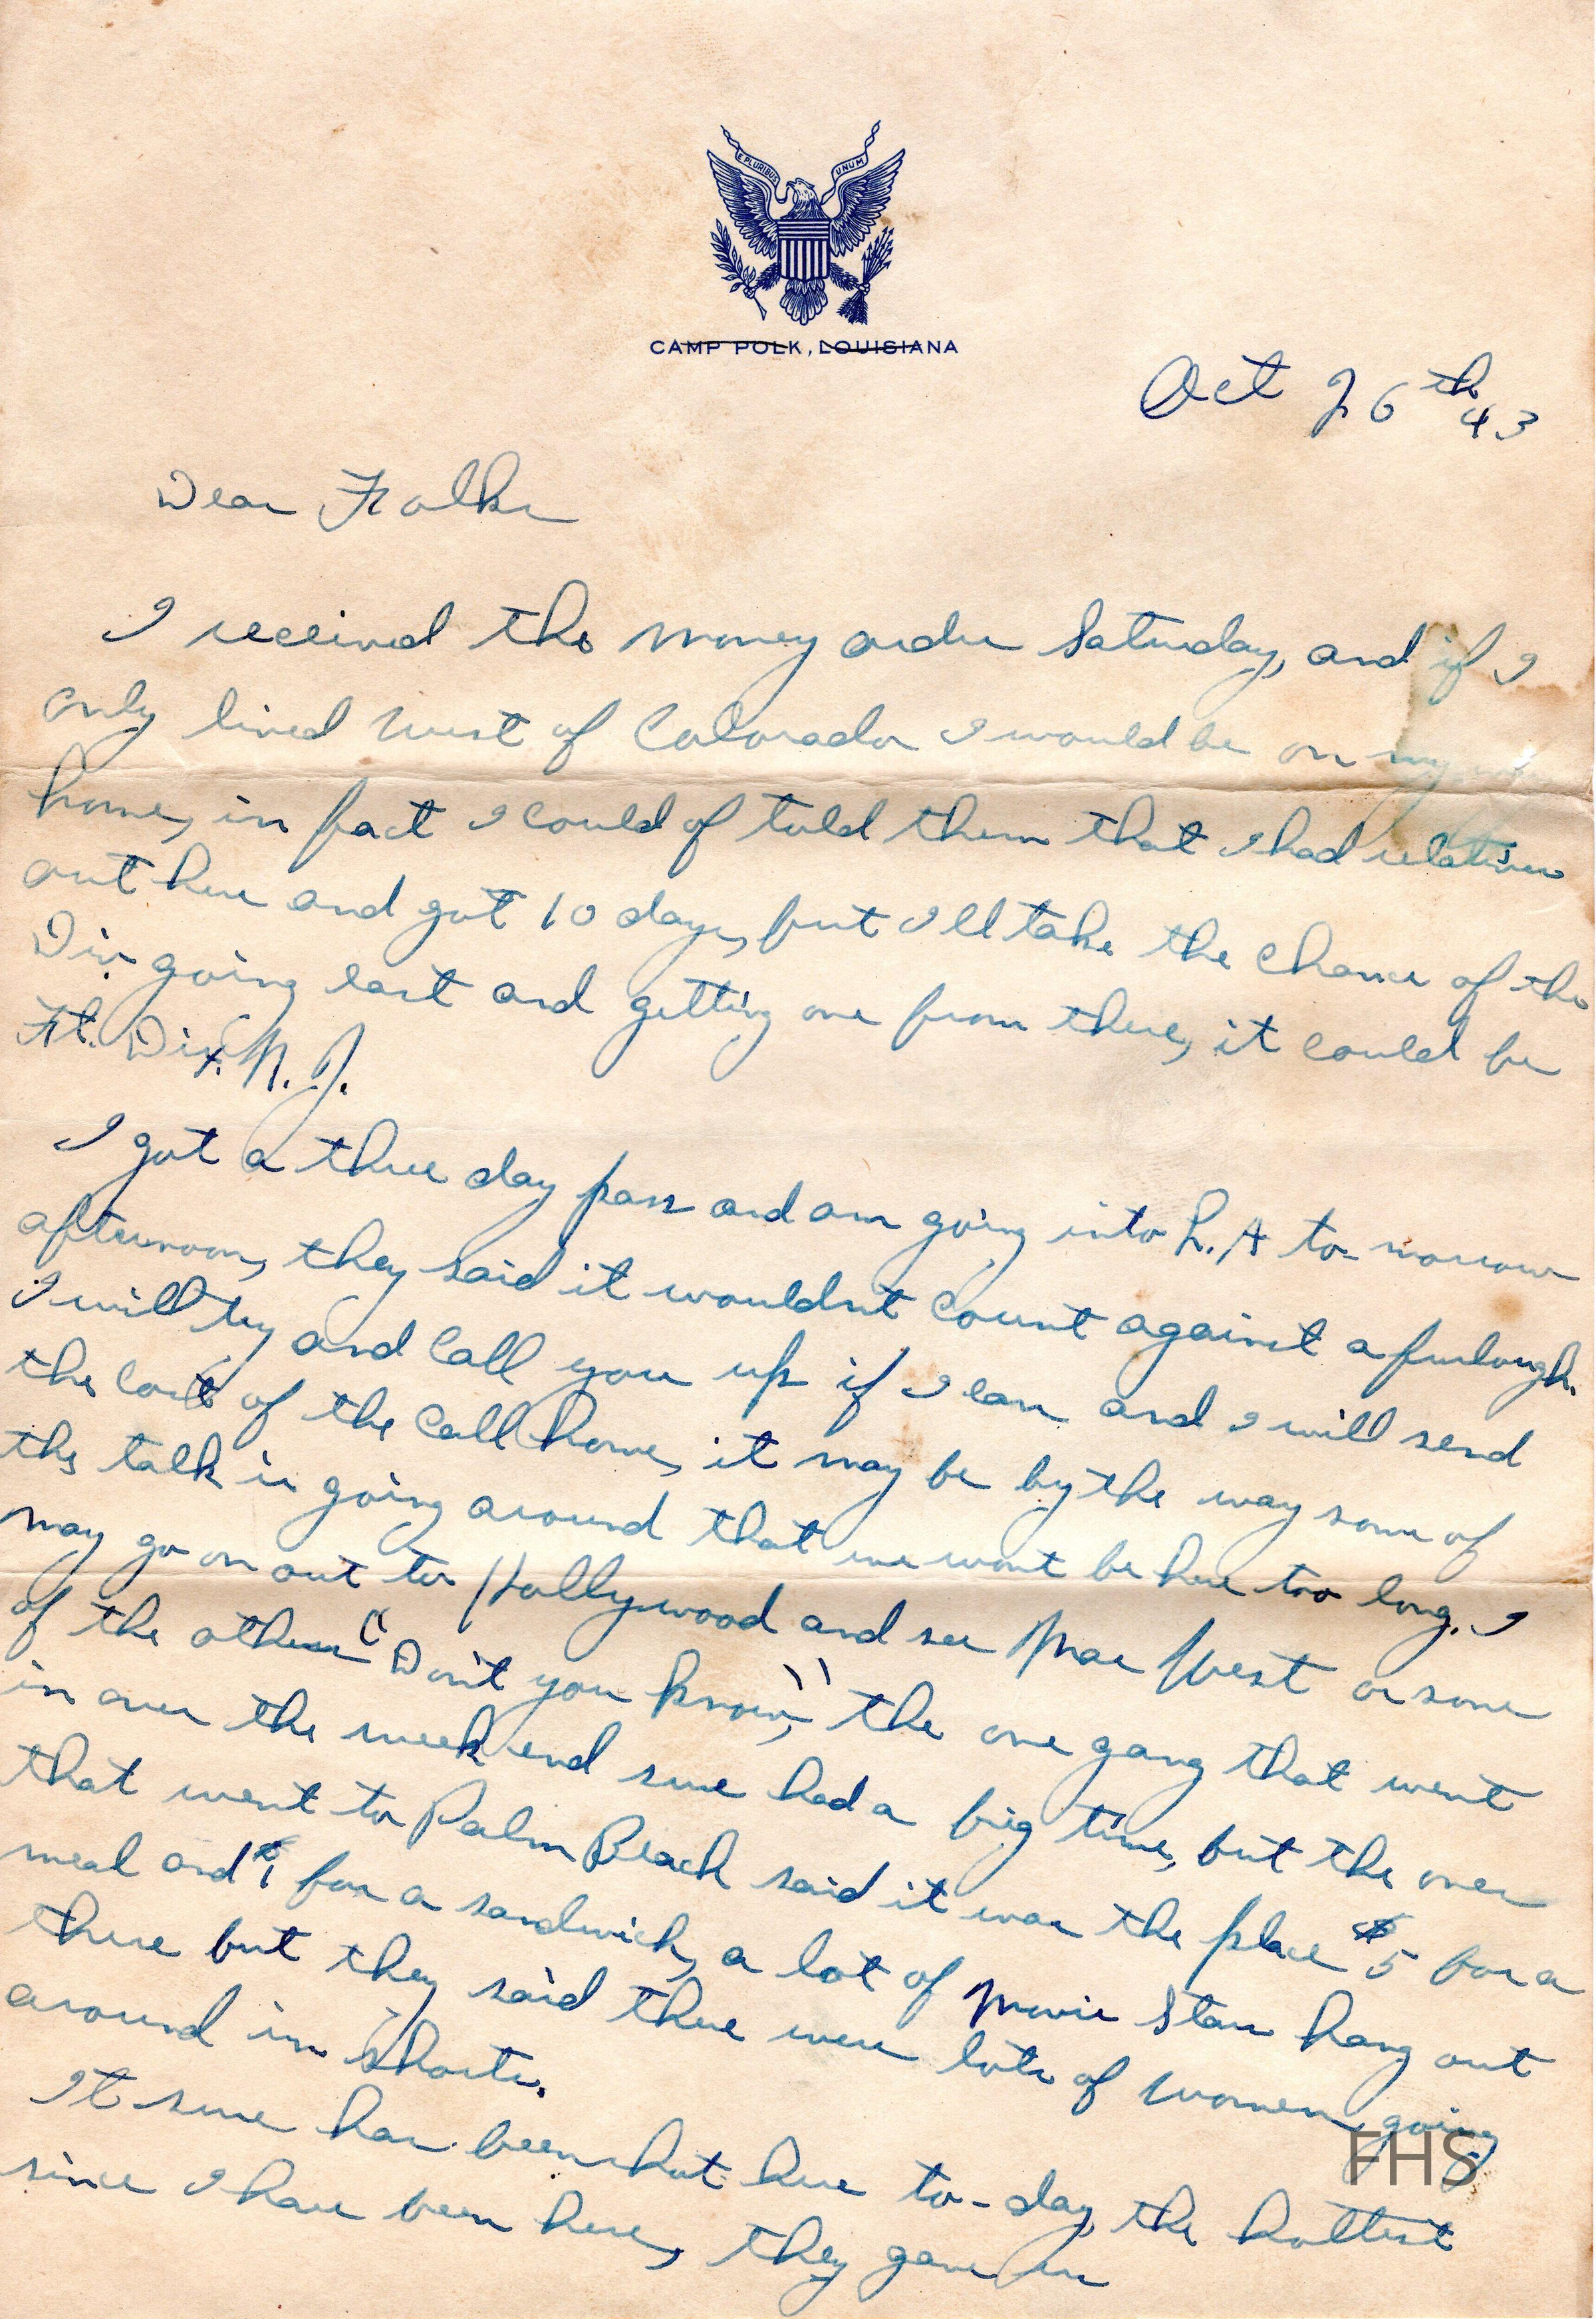 E PLURIBUS UNUM
CAMP POLK, LOUISIANA
Oct 26th 43
Dear Folks
I received the money order Saturday, and if I
only lived west of Colorado I would be on my way
home, in fact I could of told them that I had relatives
out here and got 10 days, but I'll take the chance of the
Div going east and getting one from there, it could be
Ft. Dix. N. J.
I got a three day pass and am going into L.A to-morrow
afternoon, they said it wouldnt count against a furlough.
I will try and call you up if I can and I will send
the cost of the call home, it may be by the way some of
the talk is going around that we wont be here too long. I
may go on out to Hollywood and see Mae West or some
of the others "Don't you know," the one gang that went
in over the week end sure had a big time, but the ones
that went to Palm Beach said it was the place $5 for a
meal and $1 for a sandwich, a lot of Movie Stars hang out
there but they said there were lots of women going
around in shorts.
It sure has been hot here to-day, the hottest
since I have been here, they gave us
FHS